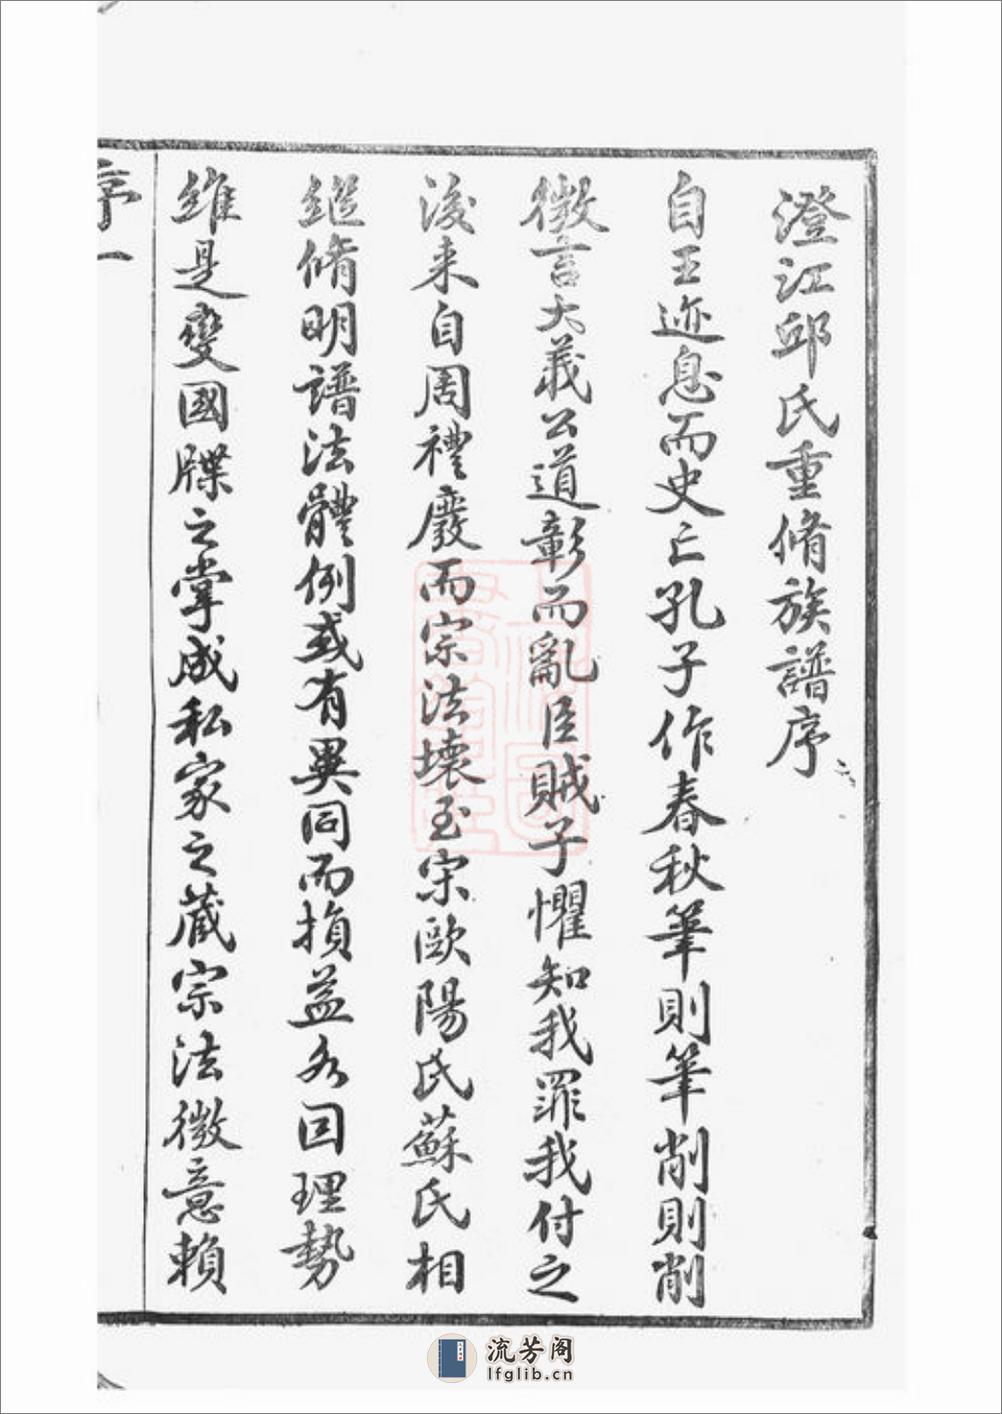 澄江邱氏重脩族譜序
自王迹息而史亡孔子作春秋筆則筆削則削
微言大義公道彰而亂臣賊子懼知我罪我付之
後来自周禮廢而宗法壞至宋歐陽氏蘇氏相
繼脩明譜法體例或有異同而損益各因理勢
維是變國牒之掌成私家之蔵宗法微意賴
序一
流芳阁
lfglib.cn